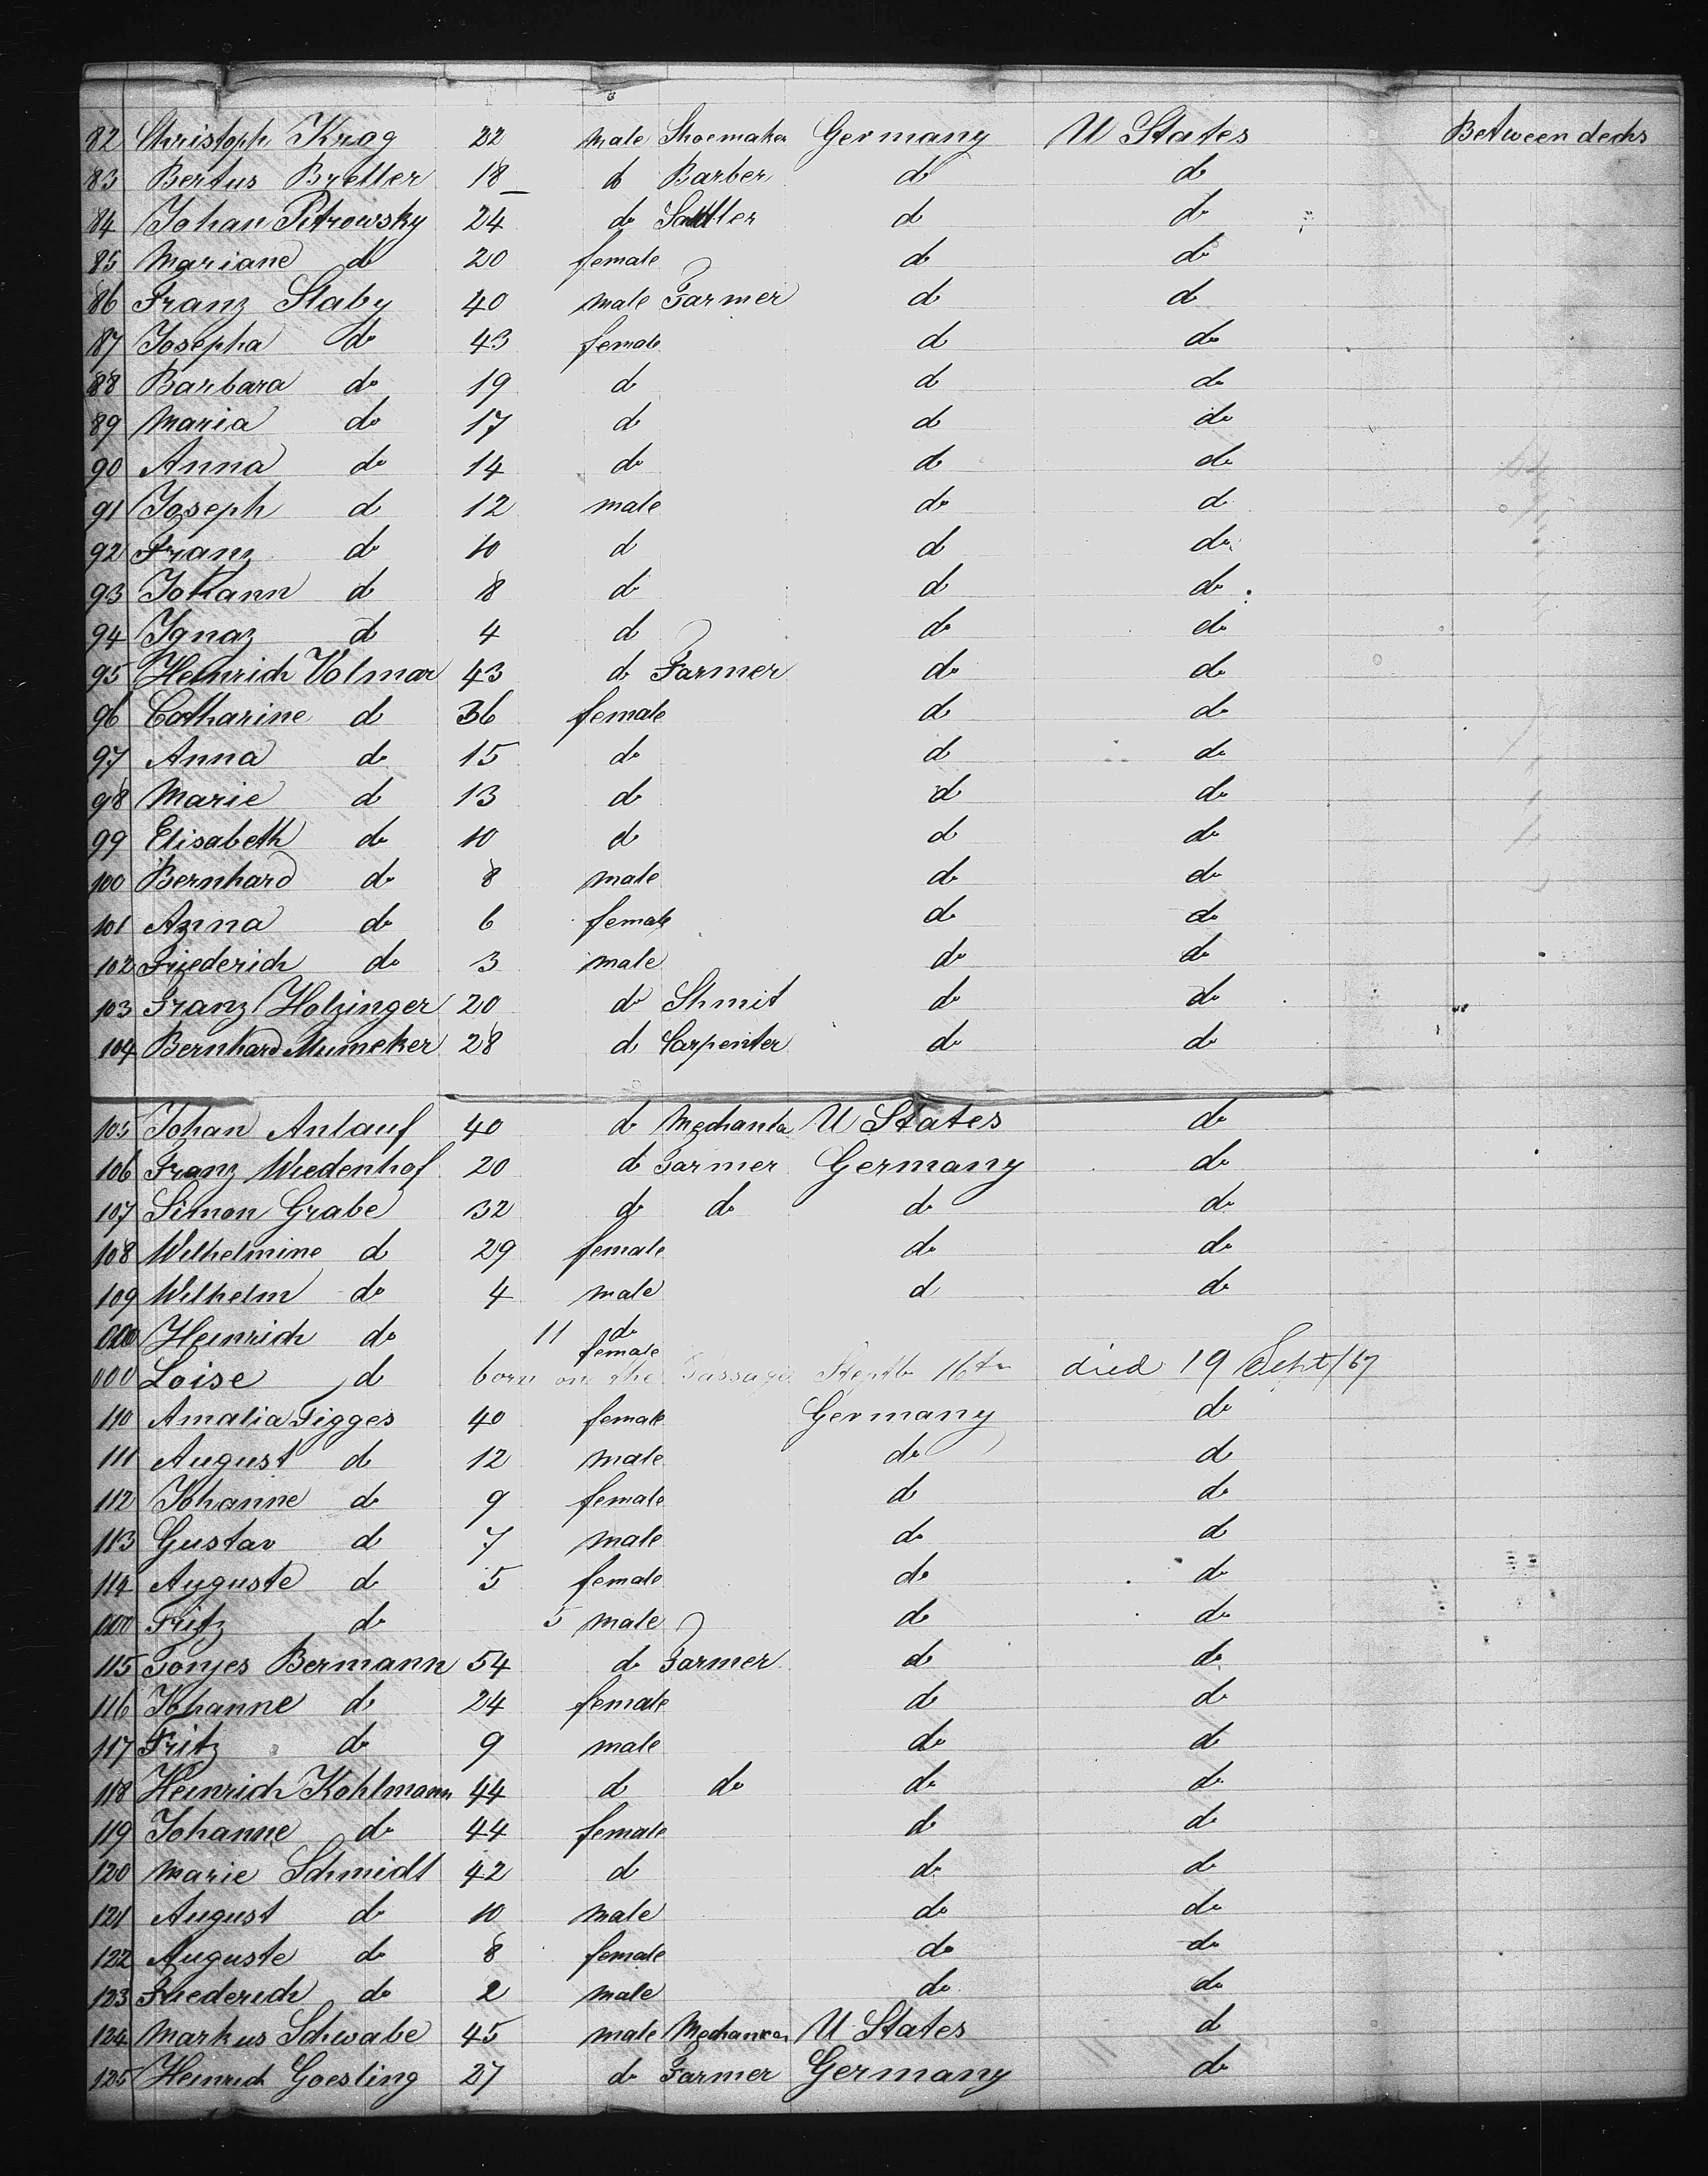 82 Christoph Krog 22 male Shoemaker Germany U States Between decks
83 Bertus Bretter 18 d Barber d d
84 Johan Pitrowsky 24 do Sattler d d
85 Mariane d 20 female d d
86 Franz Slaby 40 male Farmer d d
87 Josepha do 43 female d do
88 Barbara do 19 d d do
89 Maria do 17 d d do
90 Anna do 14 do d do
91 Joseph d 12 male do d
92 Franz do 10 d d do
93 Johann d 8 d d do
94 Ignaz d 4 d do do
95 Heinrich Volmar 43 d Farmer do do
96 Catharine d 36 female d do
97 Anna do 15 do d do
98 Marie d 13 d d do
99 Elisabeth do 10 d d do
100 Bernhard do 8 male do do
101 Anna do 6 female do do
102 Friederich do 3 male do do
103 Franz Holzinger 20 do Shmit do do
104 Bernhard Mumeker 28 d Carpenter do do
105 Johan Anlauf 40 do U States do
106 Franz Wiedenhof 20 d Farmer Germany do
107 Simon Grabe 32 d do d do
108 Wilhelmine d 29 female do do
109 Wilhelm do 4 male d do
000 Heinrich do 11 do
000 Loise d female born on the Passage Septb 16tn died 19 Sept/67
110 Amalia Figges 40 female Germany do
111 August d 12 male do d
112 Johanne d 9 female d do
113 Gustav d 7 male do d
114 Auguste d 5 female do do
000 Fritz do 5 male do do
115 Tonjes Bermann 54 d Farmer do do
116 Johanne d 24 female d do
117 Fritz do 9 male do d
118 Heinrich Kohlmann 44 d do do do
119 Johanne do 44 female d do
120 Marie Schmidt 42 d do d
121 August d 10 male do do
122 Auguste do 8 female do do
123 Friederich do 2 male do do
124 Markus Schwabe 45 male U States d
125 Heinrich Goesling 27 do Farmer Germany do